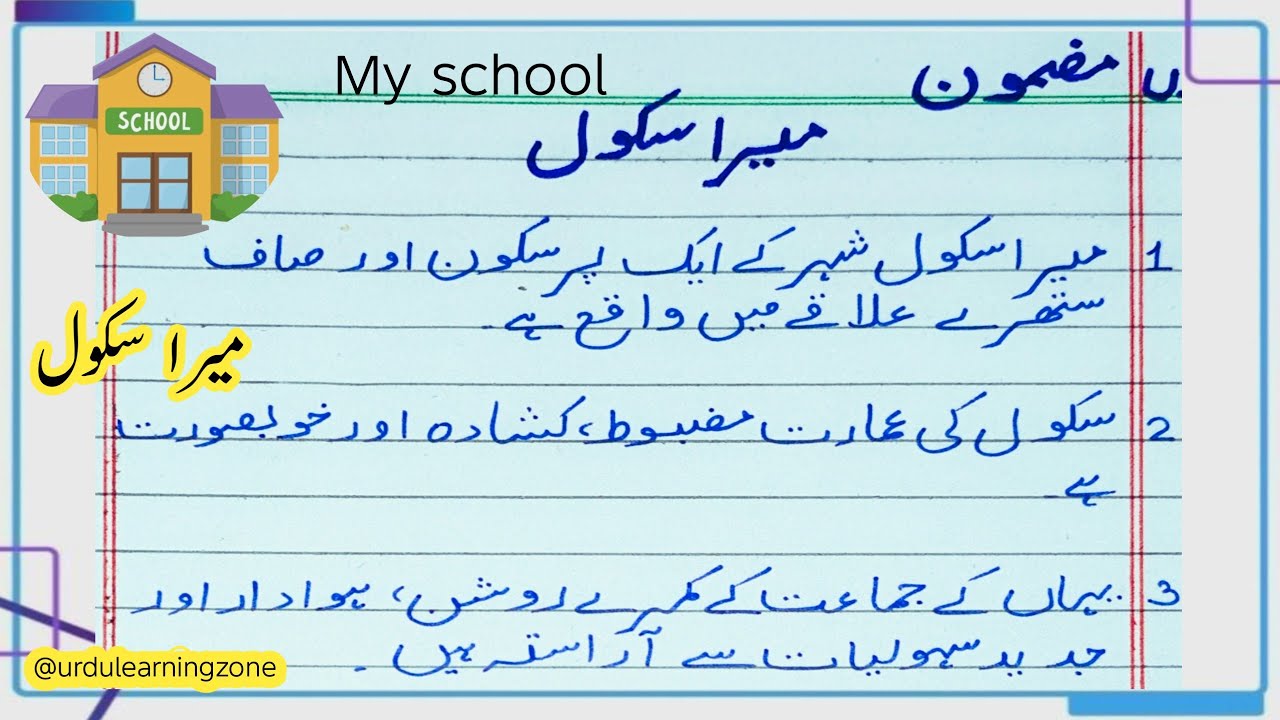 My school
مضمون
SCHOOL
میرا سکول
1 میرا سکول شہر کے ایک پرسکون اور صاف
ستھرے علاقے میں واقع ہے۔
میرا سکول
2 سکول کی عمارت مضبوط، کشادہ اور خوبصورت
ہے۔
3 یہاں کے جماعت کے کمرے روشن، ہوادار اور
جدید سہولیات سے آراستہ ہیں۔
@urdulearningzone